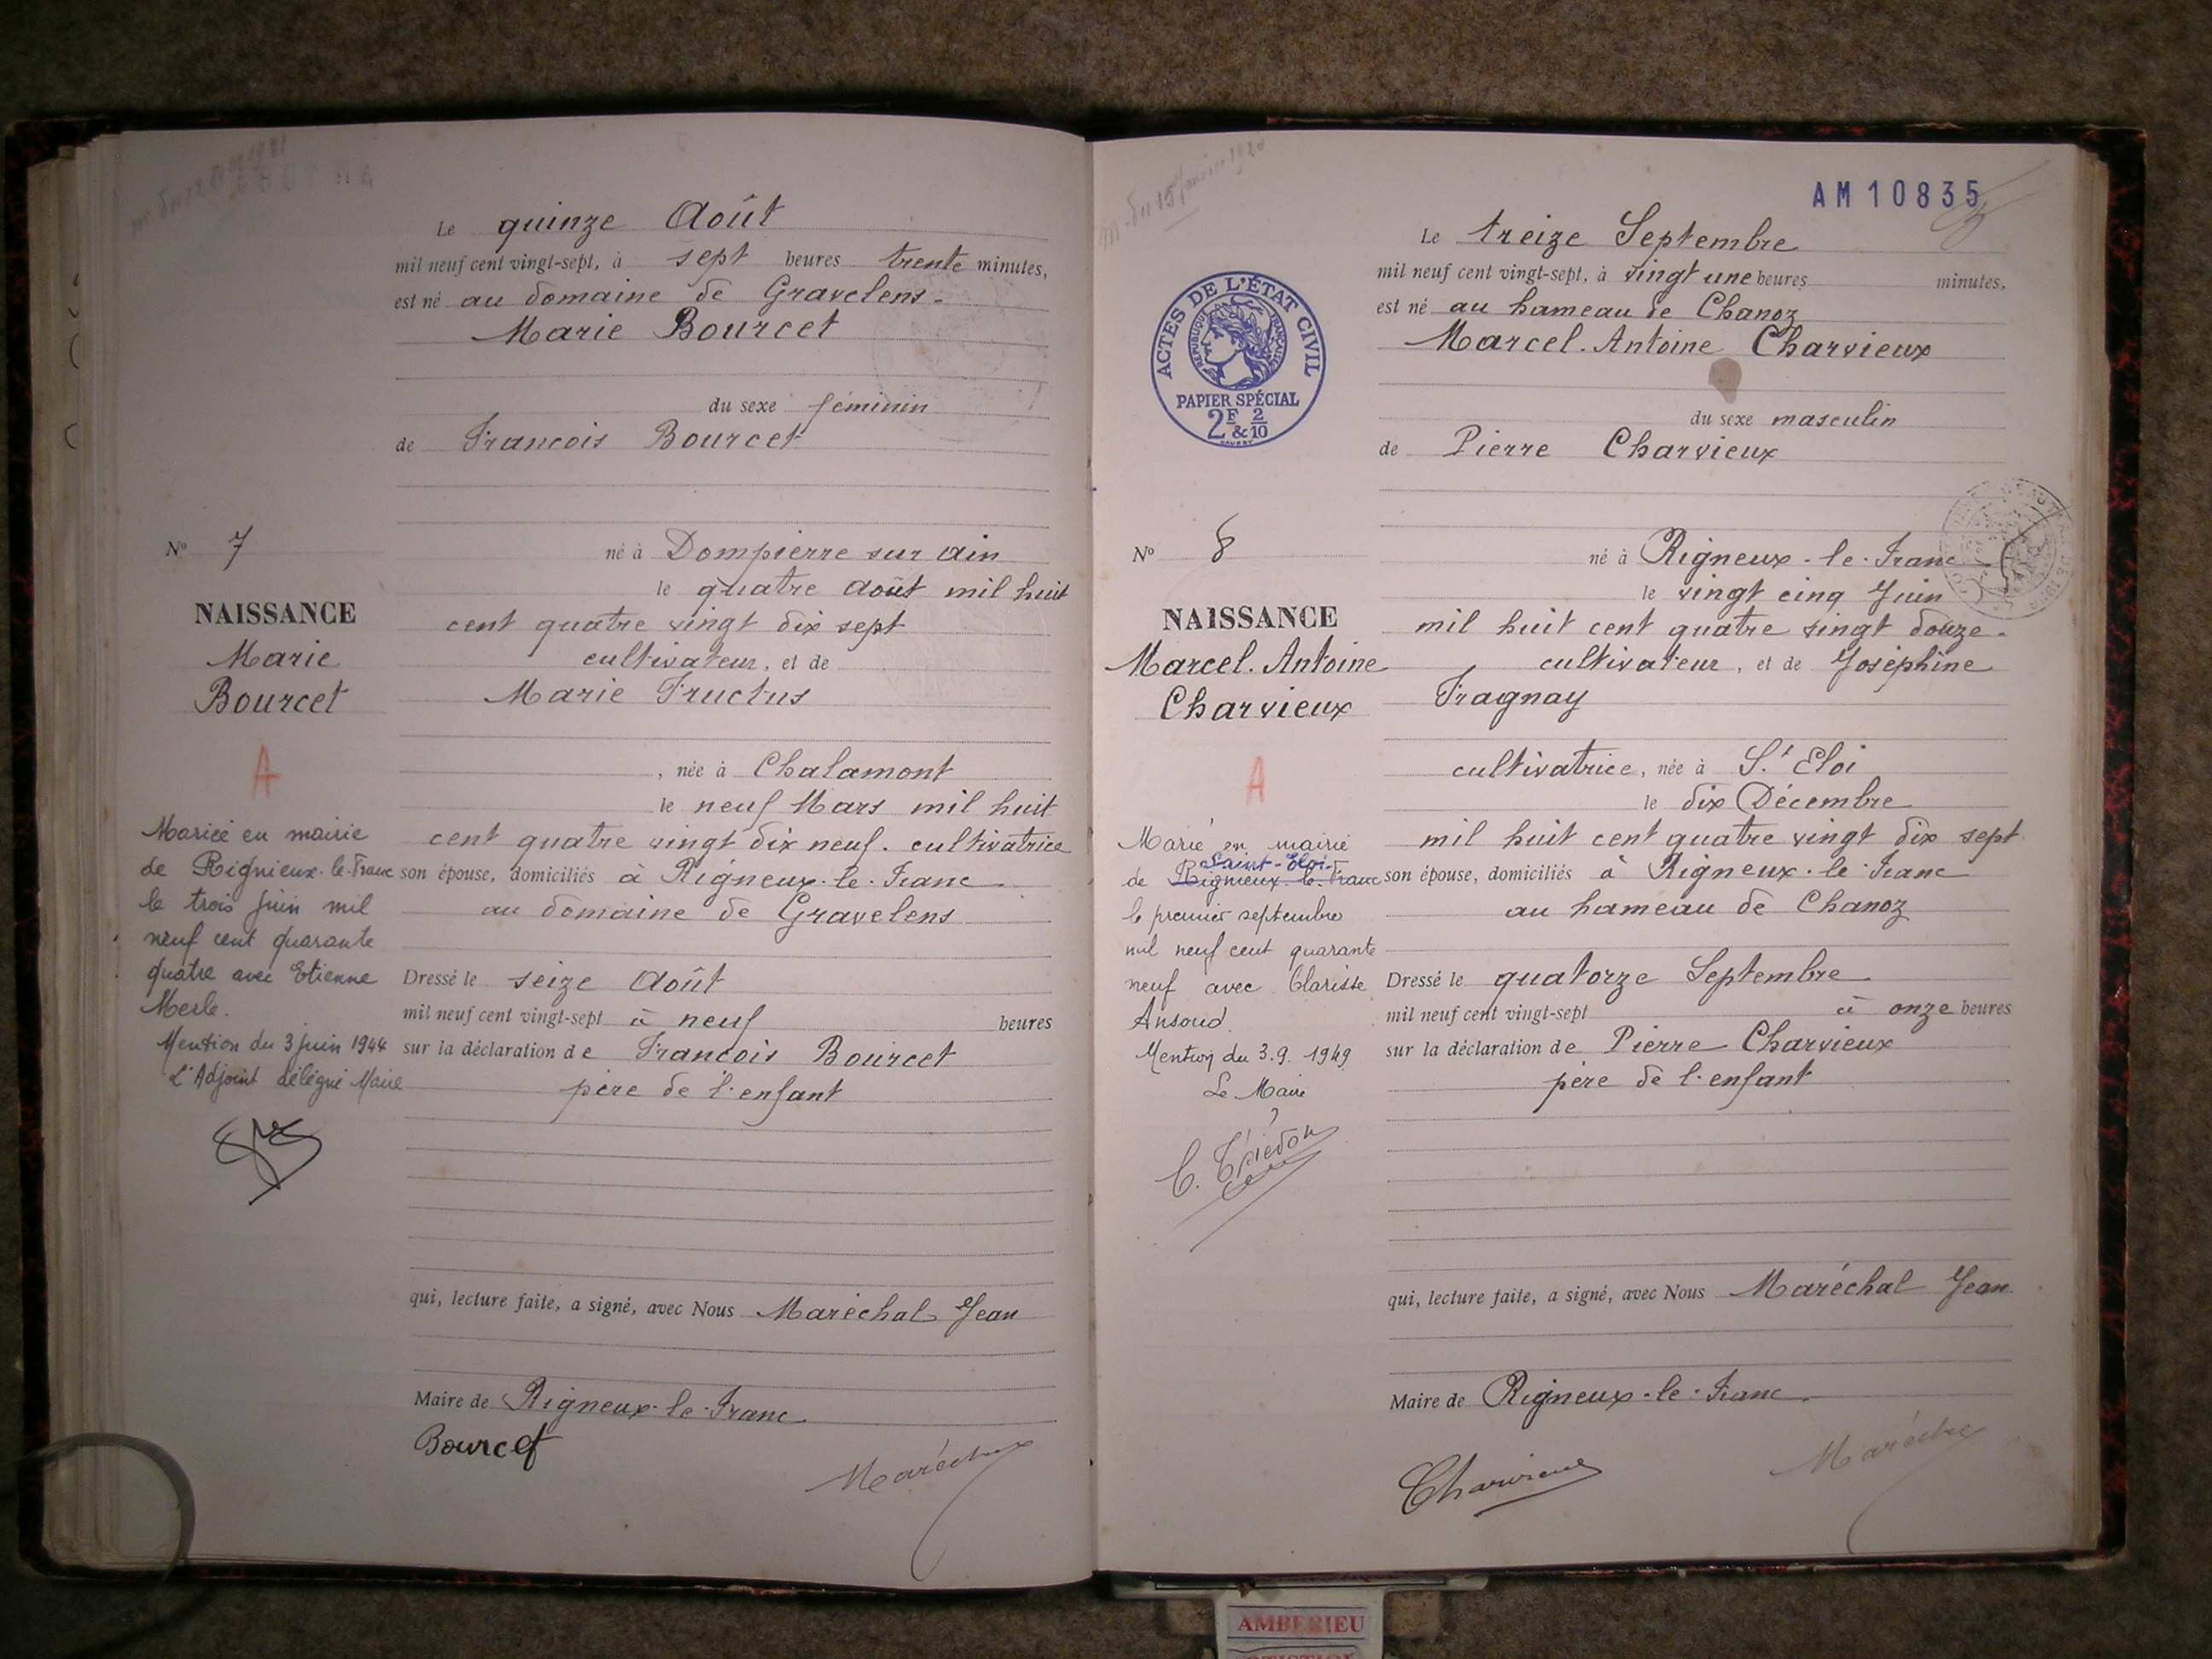 Le quinze Août
mil neuf cent vingt-sept, à sept heures trente minutes,
est né au domaine de Gravelens.
Marie Bourcet
du sexe féminin
de Francois Bourcet
né à Dompierre sur Ain
le quatre Août mil huit
cent quatre vingt dix sept
cultivateur, et de
Marie Fructus
, née à Chalamont
le neuf Mars mil huit
cent quatre vingt dix neuf. cultivatrice
son épouse, domiciliés à Rigneux-le-Franc
au domaine de Gravelens
Dressé le seize Août
mil neuf cent vingt-sept à neuf heures
sur la déclaration de Francois Bourcet
père de l'enfant
qui, lecture faite, a signé, avec Nous Maréchal Jean
Maire de Rigneux-le-Franc
Bourcet
No 7
NAISSANCE
Marie
Bourcet
A
Mariée en mairie
de Rignieux-le-Franc
le trois juin mil
neuf cent quarante
quatre avec Etienne
Merle.
Mention du 3 juin 1944
L'Adjoint délégué Maire
AM 10835
Le treize Septembre
mil neuf cent vingt-sept, à vingt une heures minutes,
est né au hameau de Chanoz
Marcel-Antoine Charvieux
du sexe masculin
de Pierre Charvieux
né à Rigneux-le-Franc
le vingt cinq Juin
mil huit cent quatre vingt douze.
cultivateur, et de Joséphine
Fragnay
cultivatrice, née à St Eloi
le dix Décembre
mil huit cent quatre vingt dix sept
son épouse, domiciliés à Rigneux-le-Franc
au hameau de Chanoz
Dressé le quatorze Septembre
mil neuf cent vingt-sept à onze heures
sur la déclaration de Pierre Charvieux
père de l'enfant
qui, lecture faite, a signé, avec Nous Maréchal Jean
Maire de Rigneux-le-Franc.
Charvieux
ACTES DE L'ÉTAT CIVIL
RÉPUBLIQUE FRANÇAISE
PAPIER SPÉCIAL
2F & 2/10
No 8
NAISSANCE
Marcel-Antoine
Charvieux
A
Marié en mairie
Saint-Eloi
de Rignieux-le-Franc
le premier septembre
mil neuf cent quarante
neuf avec Clarisse
Mention du 3.9.1949
Le Maire
AMBERIEU